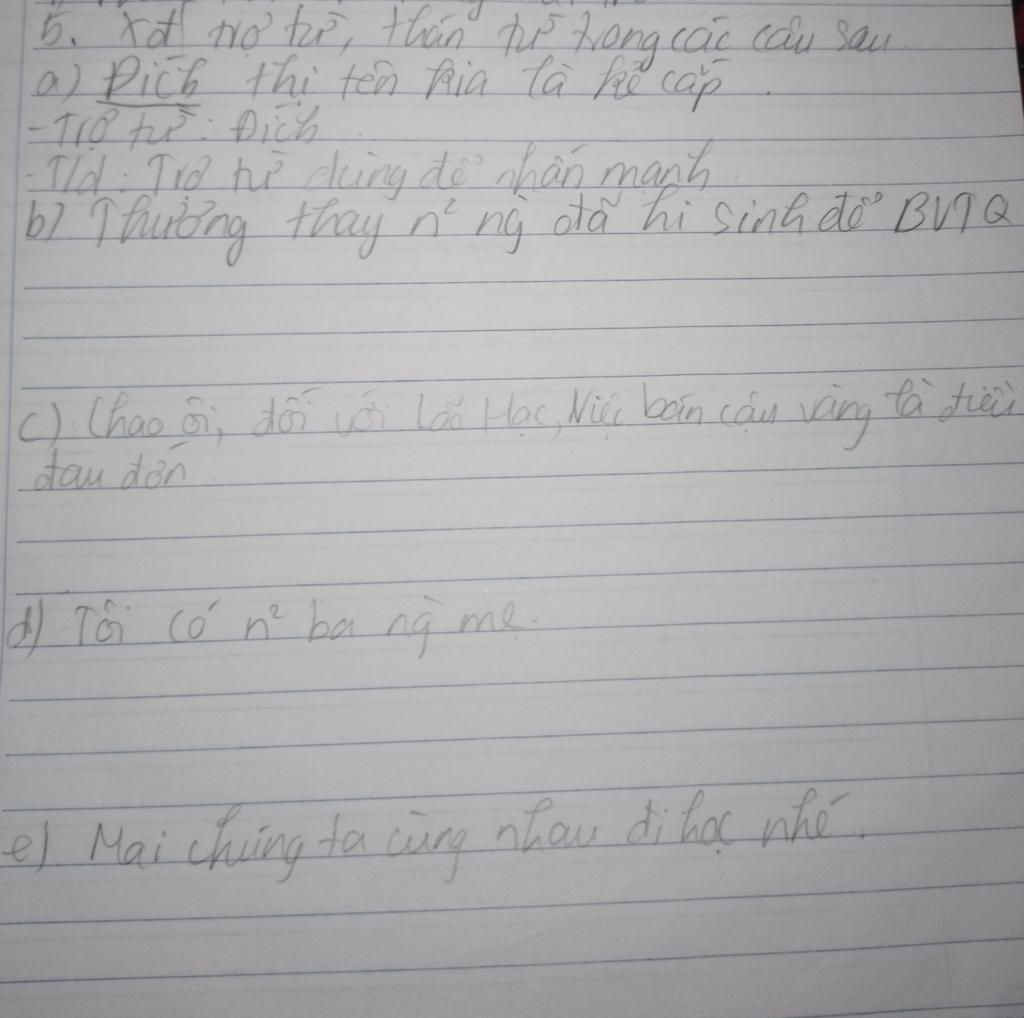 5. Xđ trợ từ, thán từ trong các câu sau
a) Đích thị tên kia là kẻ cắp.
- Trợ từ: Đích
- T/d: Trợ từ dùng để nhấn mạnh
b) Thương thay n² ng đã hi sinh để BVTQ
c) Chao ôi, đối với Lão Hạc, Việc bán cậu vàng là điều
đau đớn
d) Tôi có n² ba ng mẹ.
e) Mai chúng ta cùng nhau đi học nhé.